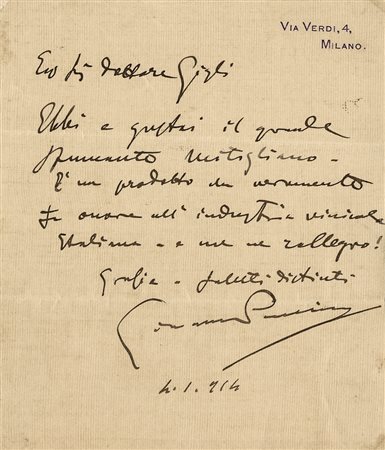 VIA VERDI, 4,
MILANO.
Eg Sig dottore Gigli
Ebbi e gustai il grande
spumante Mitigliano -
È un prodotto che veramente
fa onore all'industria vinicola
Italiana - e me ne rallegro!
Grazie e saluti distinti
Giacomo Puccini
4.1.914